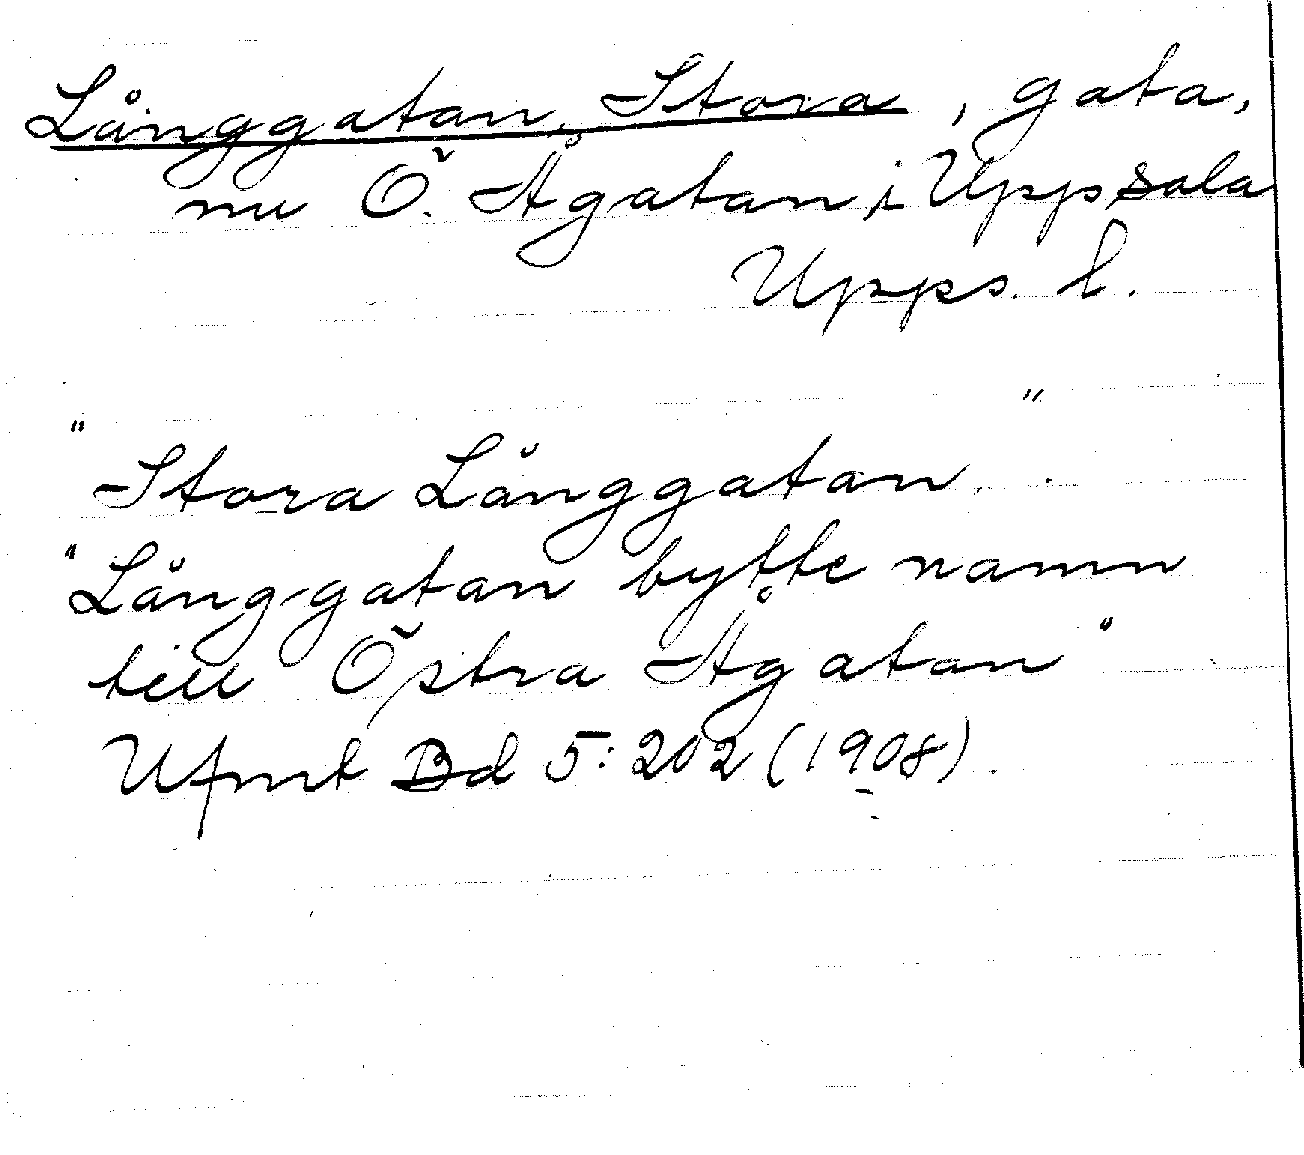 Långgatan, Stora, gata,
nu Ö. Ågatan i Uppsala
Upps. l.
"Stora Långgatan"
"Långgatan bytte namn
till Östra Ågatan"
Ufmt Bd 5: 202 (1908)